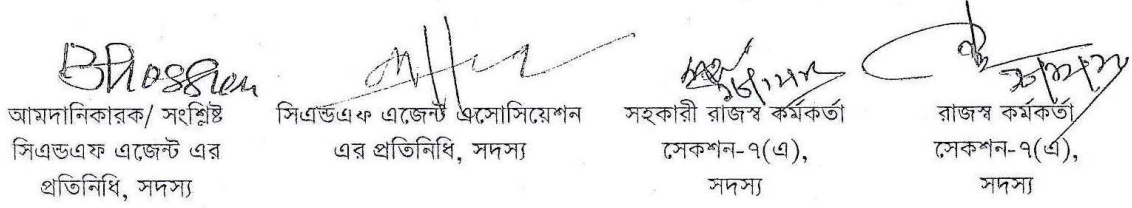 আমদানিকারক/ সংশ্লিষ্ট
সিএন্ডএফ এজেন্ট এর
প্রতিনিধি, সদস্য
সিএন্ডএফ এজেন্ট এসোসিয়েশন
এর প্রতিনিধি, সদস্য
সহকারী রাজস্ব কর্মকর্তা
সেকশন-৭(এ),
সদস্য
রাজস্ব কর্মকর্তা
সেকশন-৭(এ),
সদস্য